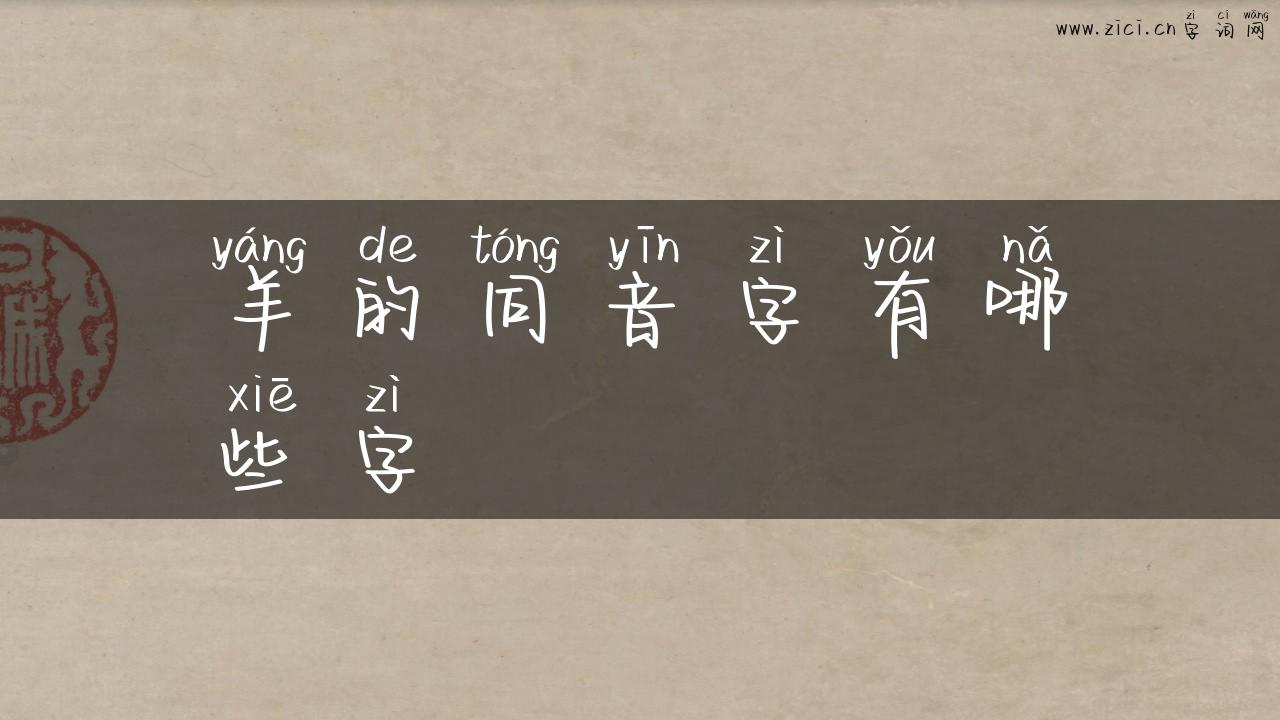 zì cí wǎng
www.zici.cn字词网
yáng de tóng yīn zì yǒu nǎ
羊的同音字有哪
xiē zì
些字